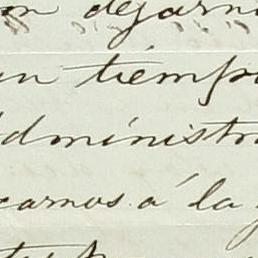 on dejarn
un tiempo
administra
carnos á la